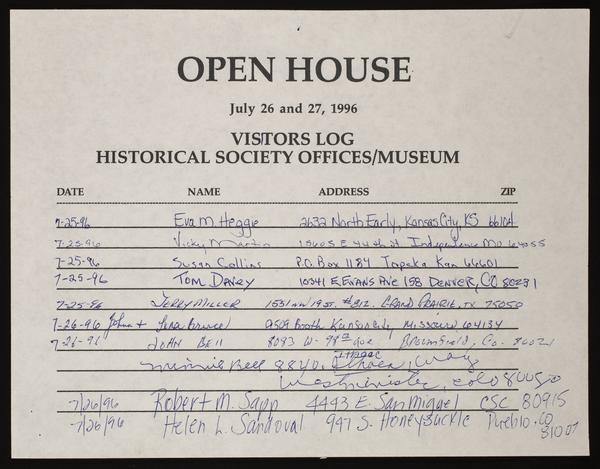 OPEN HOUSE
July 26 and 27, 1996
VISITORS LOG
HISTORICAL SOCIETY OFFICES/MUSEUM
DATE NAME ADDRESS ZIP
7-25-96 Eva M. Heggie 2632 North Early, Kansas City, KS 66101
7-25-96 Vicky Martin E 44th St Independence MO 64055
7-25-96 Susan Collins P.O. Box 1184 Topeka Kan 66601
7-25-96 Tom Davey 10341 E. Evans Ave 158 Denver, CO 80231
7-25-96 Jerry Miller 1531 NW 19 St. #812 Grand Prairie, TX 75050
7-26-96 John & Lena Bruce 9509 Booth Kansas City, Missouri 64134
7-26-96 John Bell 8093 W. 98th Ave Broomfield, Co. 80021
Minnie Bell 8840 Ithaca Way
Westminister, Colo
7/26/96 Robert M. Sapp 4443 E. San Miguel CSC 80915
7/26/96 Helen L. Sandoval 947 S. Honeysuckle Pueblo, CO
81007